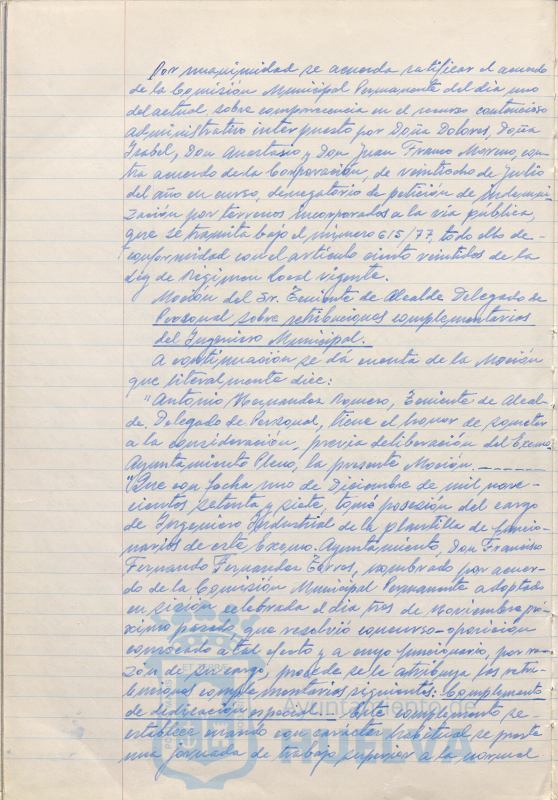 Por unanimidad se acuerda ratificar el acuerdo
de la Comisión Municipal Permanente del dia uno
del actual sobre comparecencia en el recurso contencioso
administrativo interpuesto por Doña Dolores, Doña
Isabel, Don Anastasio y Don Juan Franco Moreno, con-
tra acuerdo de la Corporación, de veintiocho de julio
del año en curso, denegatorio de petición de indemni-
zación por terrenos incorporados a la via pública,
que se tramita bajo el número 615/77, todo ello de
conformidad con el artículo ciento veintidos de la
Ley de Régimen Local vigente.
Moción del Sr. Teniente de Alcalde Delegado de
Personal sobre retribuciones complementarias
del Ingeniero Municipal.
A continuación se dá cuenta de la Moción
que literalmente dice:
"Antonio Hernandez Romero, Teniente de Alcal-
de Delegado de Personal, tiene el honor de someter
a la consideración, previa deliberación del Excmo.
Ayuntamiento Pleno, la presente Moción. ------
"Que con fecha uno de Diciembre de mil nove-
cientos setenta y siete, tomó posesión del cargo
de Ingeniero Industrial de la plantilla de funcio-
narios de este Excmo. Ayuntamiento, Don Francisco
Fernando Fernandez Torres, nombrado por acuer-
do de la Comisión Municipal Permanente adoptado
en sesión celebrada el dia tres de Noviembre pró-
ximo pasado, que resolvió concurso-oposición
convocado a tal efecto y a cuyo funcionario, por ra-
zón de su cargo, procede se le atribuya las retri-
buciones complementarias siguientes: Complemento
de dedicación especial.- Este complemento se
establece cuando con carácter habitual se preste
una jornada de trabajo superior a la normal
Ayuntamiento de
HUELVA